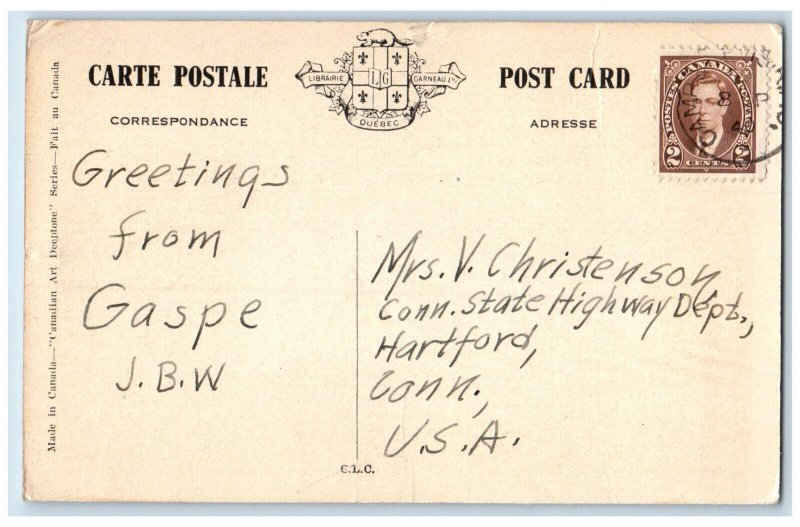 CARTE POSTALE
LIBRAIRIE LG GARNEAU LTÉE
QUÉBEC
POST CARD
CORRESPONDANCE
ADRESSE
POSTES CANADA POSTAGE
2 CENTS 2
Greetings
from
Gaspe
J.B.W
Mrs. V. Christenson,
Conn. State Highway Dept.,
Hartford,
Conn.,
U.S.A.
C.L.C.
Made in Canada—"Canadian Art Deeptone" Series—Fait au Canada